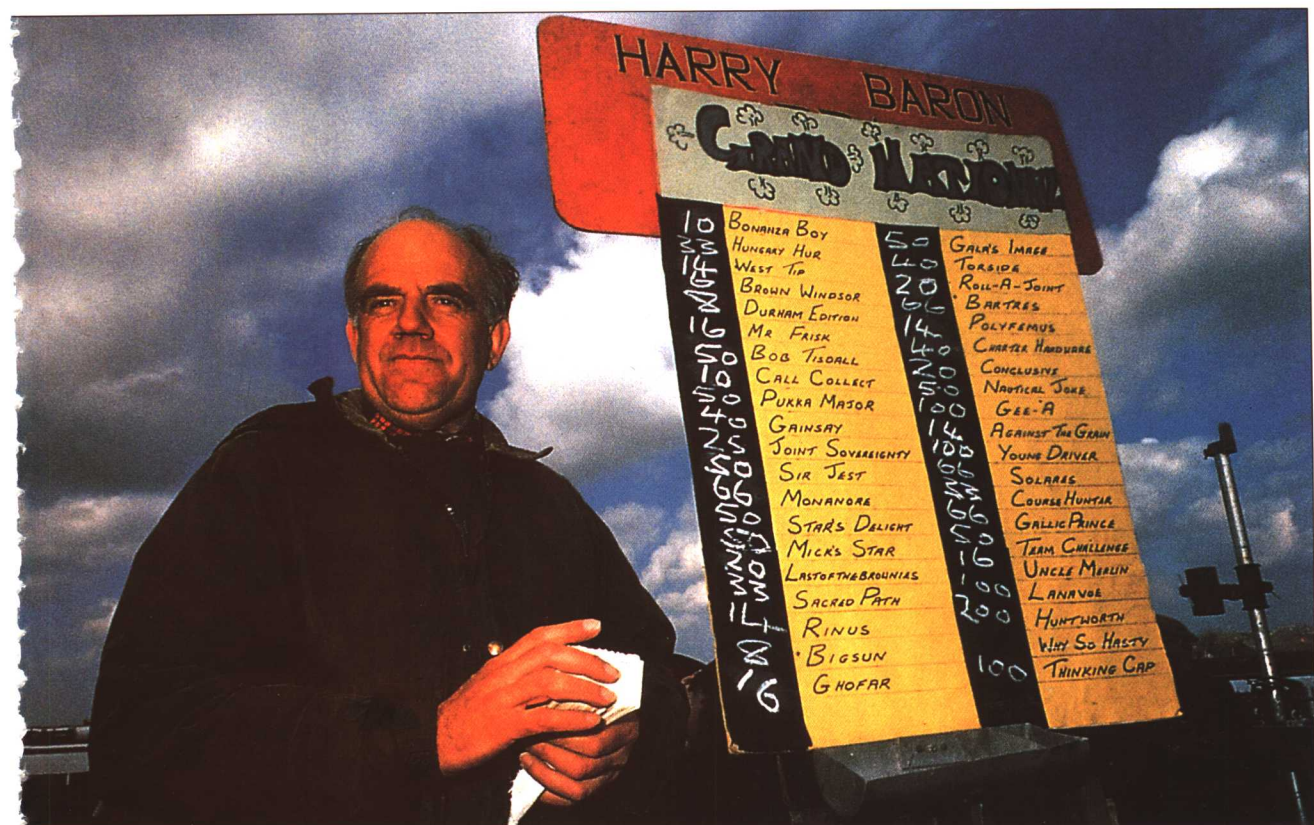 HARRY BARON
GRAND NATIONAL
10 BONANZA BOY
33 HUNGARY HUR
14 WEST TIP
BROWN WINDSOR
8 DURHAM EDITION
16 MR FRISK
50 BOB TISDALL
CALL COLLECT
PUKKA MAJOR
GAINSAY
JOINT SOVEREIGNTY
SIR JEST
MONANORE
STAR'S DELIGHT
MICK'S STAR
LASTOFTHEBROWNIES
SACRED PATH
14 RINUS
8 BIGSUN
16 GHOFAR
50 GALA'S IMAGE
40 TORSIDE
20 ROLL-A-JOINT
66 BARTRES
14 POLYFEMUS
40 CHARTER HARDWARE
20 CONCLUSIVE
50 NAUTICAL JOKE
100 GEE-A
14 AGAINST THE GRAIN
100 YOUNG DRIVER
66 SOLARES
33 COURSE HUNTER
66 GALLIC PRINCE
50 TEAM CHALLENGE
16 UNCLE MERLIN
100 LANAVOE
200 HUNTWORTH
WHY SO HASTY
100 THINKING CAP